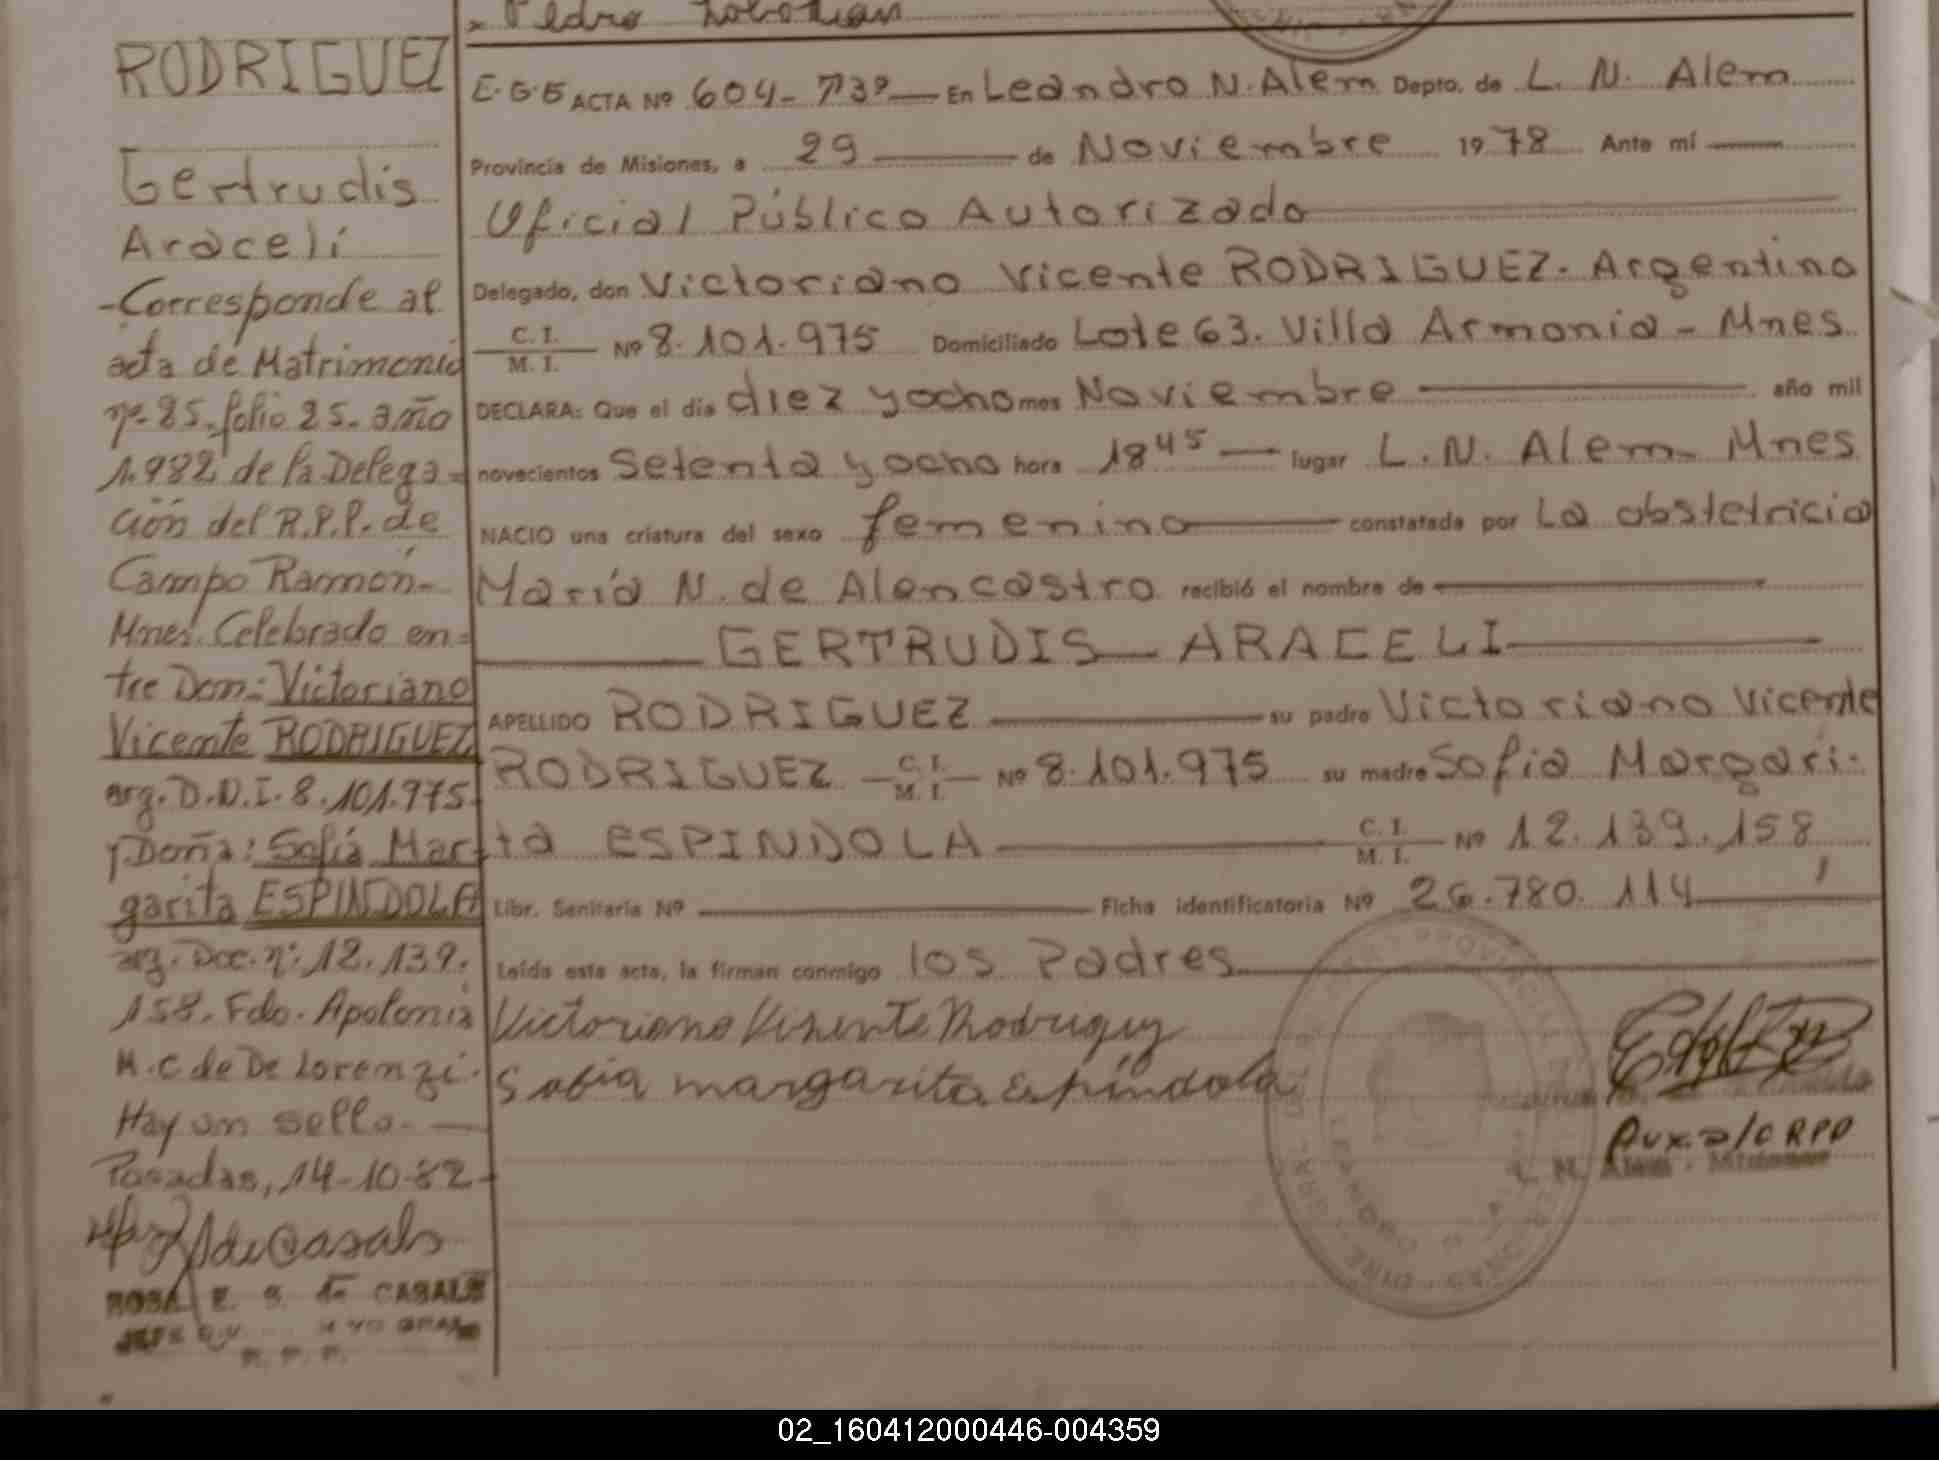 Pedro
RODRIGUEZ
Gertrudis
Araceli
-Corresponde al
acta de Matrimonio
nº 25. folio 25. año
1.982 de la Delega=
ción del R.P.P. de
Campo Ramón-
Mnes. Celebrado en=
tre Don: Victoriano
Vicente RODRIGUEZ
arg. D.N.I. 8.101.975.
y Doña: Sofía Mar-
garita ESPINDOLA
arg. Doc. nº: 12.139.
158. Fdo. Apolonia
M. C de De Lorenzi.
Hay un sello.
Posadas, 14-10-82-
de Casals
ROSA E. S. de CASALS
JEFE
R. P. P.
E.G.5 ACTA Nº 604- Tº3º En Leandro N. Alem Depto. de L. N. Alem
Provincia de Misiones, a 29 de Noviembre 1978 Ante mí
Oficial Público Autorizado
Delegado, don Victoriano Vicente RODRIGUEZ. Argentino
C. I. / M. I. Nº 8.101.975 Domiciliado Lote 63. Villa Armonia - Mnes
DECLARA: Que el día diez y ocho mes Noviembre año mil
novecientos Setenta y ocho hora 18 45 lugar L. N. Alem- Mnes
NACIO una criatura del sexo femenino constatada por La obstetricia
María N. de Alencastro recibió el nombre de
GERTRUDIS ARACELI
APELLIDO RODRIGUEZ su padre Victoriano Vicente
RODRIGUEZ C. I. / M. I. Nº 8.101.975 su madre Sofia Margari-
ta ESPINDOLA C. I. / M. I. Nº 12.139.158,
Libr. Sanitaria Nº Ficha identificatoria Nº 26.780.114
Leída esta acta, la firman conmigo los Padres
Victoriano Visente Rodriguez
Sofia margarita Espíndola
Aux. a/C RPP
L. N. Alem - Misiones
PROVINCIA
LEANDRO N. ALEM
02_160412000446-004359